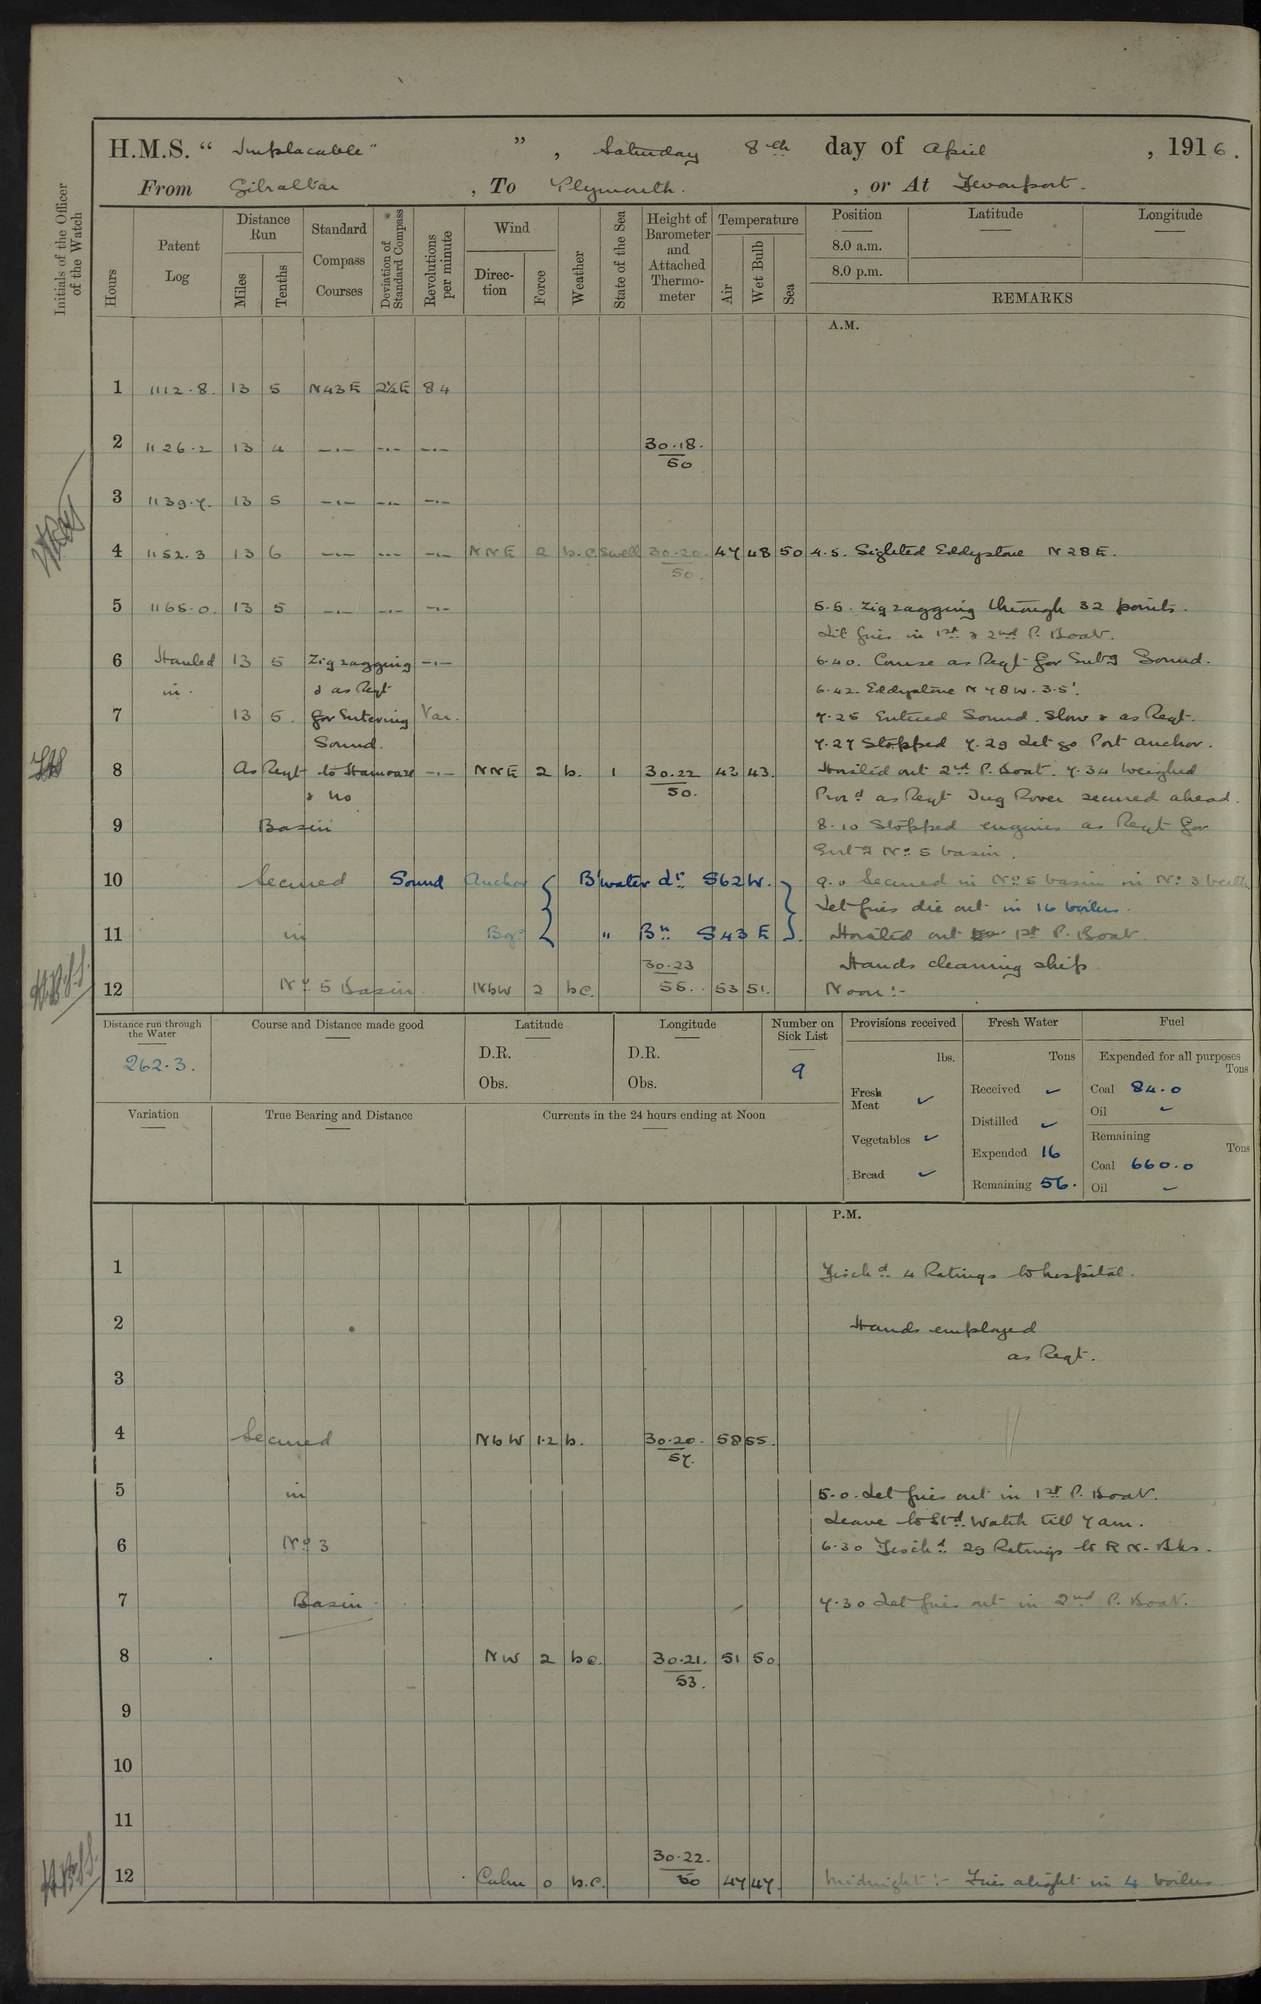 H.M.S. “ Implacable” ” , Saturday 8th day of April , 1916.
From Gibraltar , To Plymouth. , or At Devonport.
Initials of the Officer of the Watch
Hours
Patent Log
Distance Run
Miles
Tenths
Standard Compass Courses
Deviation of Standard Compass
Revolutions per minute
Wind
Direc-tion
Force
Weather
State of the Sea
Height of Barometer and Attached Thermo-meter
Temperature
Air
Wet Bulb
Sea
Position Latitude Longitude
8.0 a.m.
8.0 p.m.
REMARKS
A.M.
1 1112.8. 13 5 N43E 2½E 84
2 1126.2 13 4 —.— —.— —.— 30.18. 50
3 1139.7. 13 5 —.— —.— —.—
4 1152.3 13 6 —.— —.— —.— NNE 2 b.c. Swell 30.20. 50. 47 48 50 4.5. Sighted Eddystone N28E.
5 1165.0. 13 5 —.— —.— —.— 5.5. Zigzagging through 32 points.
Lit fires in 1st & 2nd P. Boat.
6 Hauled 13 5 Zigzagging —.— 6.40. Course as Reqt for Entg Sound.
in. & as Reqt 6.42. Eddystone N78W. 3.5'.
7 13 5. for Entering Var. 7.25 Entered Sound. Slow & as Reqt.
Sound. 7.27 Stopped 7.29 Let go Port anchor.
8 As Reqt to Hamoaze —.— NNE 2 b. 1 30.22 50. 43 43. Hoisted out 2nd P. Boat. 7.34 Weighed
& No Procd as Reqt Tug Rover secured ahead.
9 Basin 8.10 Stopped engines as Reqt for
Entg No 5 basin.
10 Secured Sound Anchor { B'water Lt S62W. } 9.0 Secured in No 5 basin in No 3 berth
Let fires die out in 16 boilers.
11 in Bgs { " Bn S43E } Hoisted out 1st P. Boat.
Hands cleaning ship
12 No 5 Basin. NbW 2 bc. 30.23 55. 53 51. Noon:-
Distance run through the Water
262.3.
Course and Distance made good
Latitude
D.R.
Obs.
Longitude
D.R.
Obs.
Number on Sick List
9
Provisions received
lbs.
Fresh Meat ✓
Vegetables ✓
Bread ✓
Fresh Water
Tons
Received ✓
Distilled ✓
Expended 16
Remaining 56.
Fuel
Expended for all purposes
Tons
Coal 84.0
Oil ✓
Remaining
Tons
Coal 660.0
Oil ✓
Variation
True Bearing and Distance
Currents in the 24 hours ending at Noon
P.M.
1 Dischd 4 Ratings to hospital.
2 Hands employed
as Reqt.
3
4 Secured NbW 1.2 b. 30.20. 57. 58 55.
5 in 5.0. Let fires out in 1st P. Boat.
Leave to Std Watch till 7 am.
6 No 3 6.30 Dischd 29 Ratings to R N. Bks.
7 Basin. 7.30 Let fires out in 2nd P. Boat.
8 NW 2 bc. 30.21. 53. 51 50
9
10
11
12 Calm 0 b.c. 30.22. 50 47 47. Midnight:- Fires alight in 4 boilers.